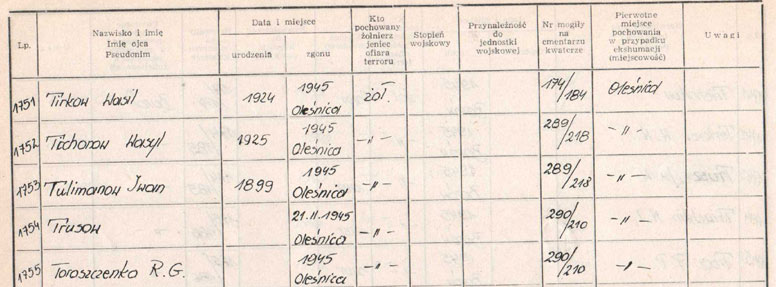 Lp.
Nazwisko i imię
Imię ojca
Pseudonim
Data i miejsce
urodzenia
zgonu
Kto
pochowany
żołnierz
jeniec
ofiara
terroru
Stopień
wojskowy
Przynależność
do
jednostki
wojskowej
Nr mogiły
na
cmentarzu
kwaterze
Pierwotne
miejsce
pochowania
w przypadku
ekshumacji
(miejscowość)
Uwagi
1751 Tirkow Wasil 1924 1945 Oleśnica żoł. 174/184 Oleśnica
1752 Tichonow Wasyl 1925 1945 Oleśnica -„- 289/218 -„-
1753 Tulimanow Iwan 1899 1945 Oleśnica -„- 289/218 -„-
1754 Trusow 21.II.1945 Oleśnica -„- 290/210 -„-
1755 Toroszczenko R.G. 1945 Oleśnica -„- 290/210 -„-